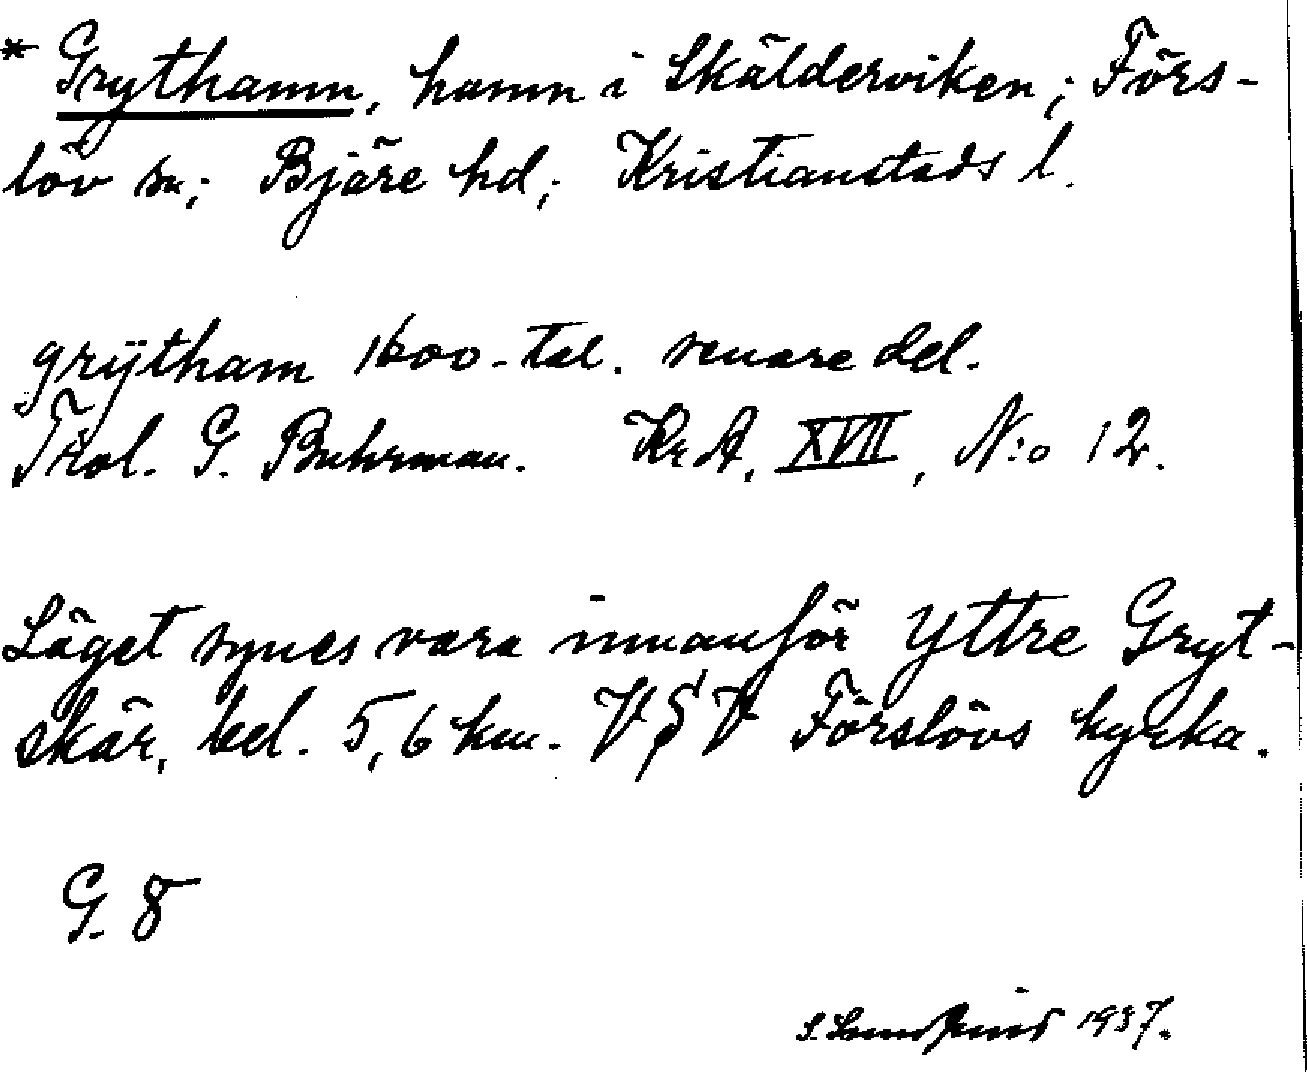 * Grythamn, hamn i Skälderviken; Förs-
löv sn; Bjäre hd; Kristianstads l.
grÿtham 1600-tal. senare del.
G. Buhrman. KrA, XVII, N:o 12.
Läget synes vara innanför Yttre Gryt-
skär, bel. 5,6 km. V§V Förslövs kyrka.
G. 8
1937.